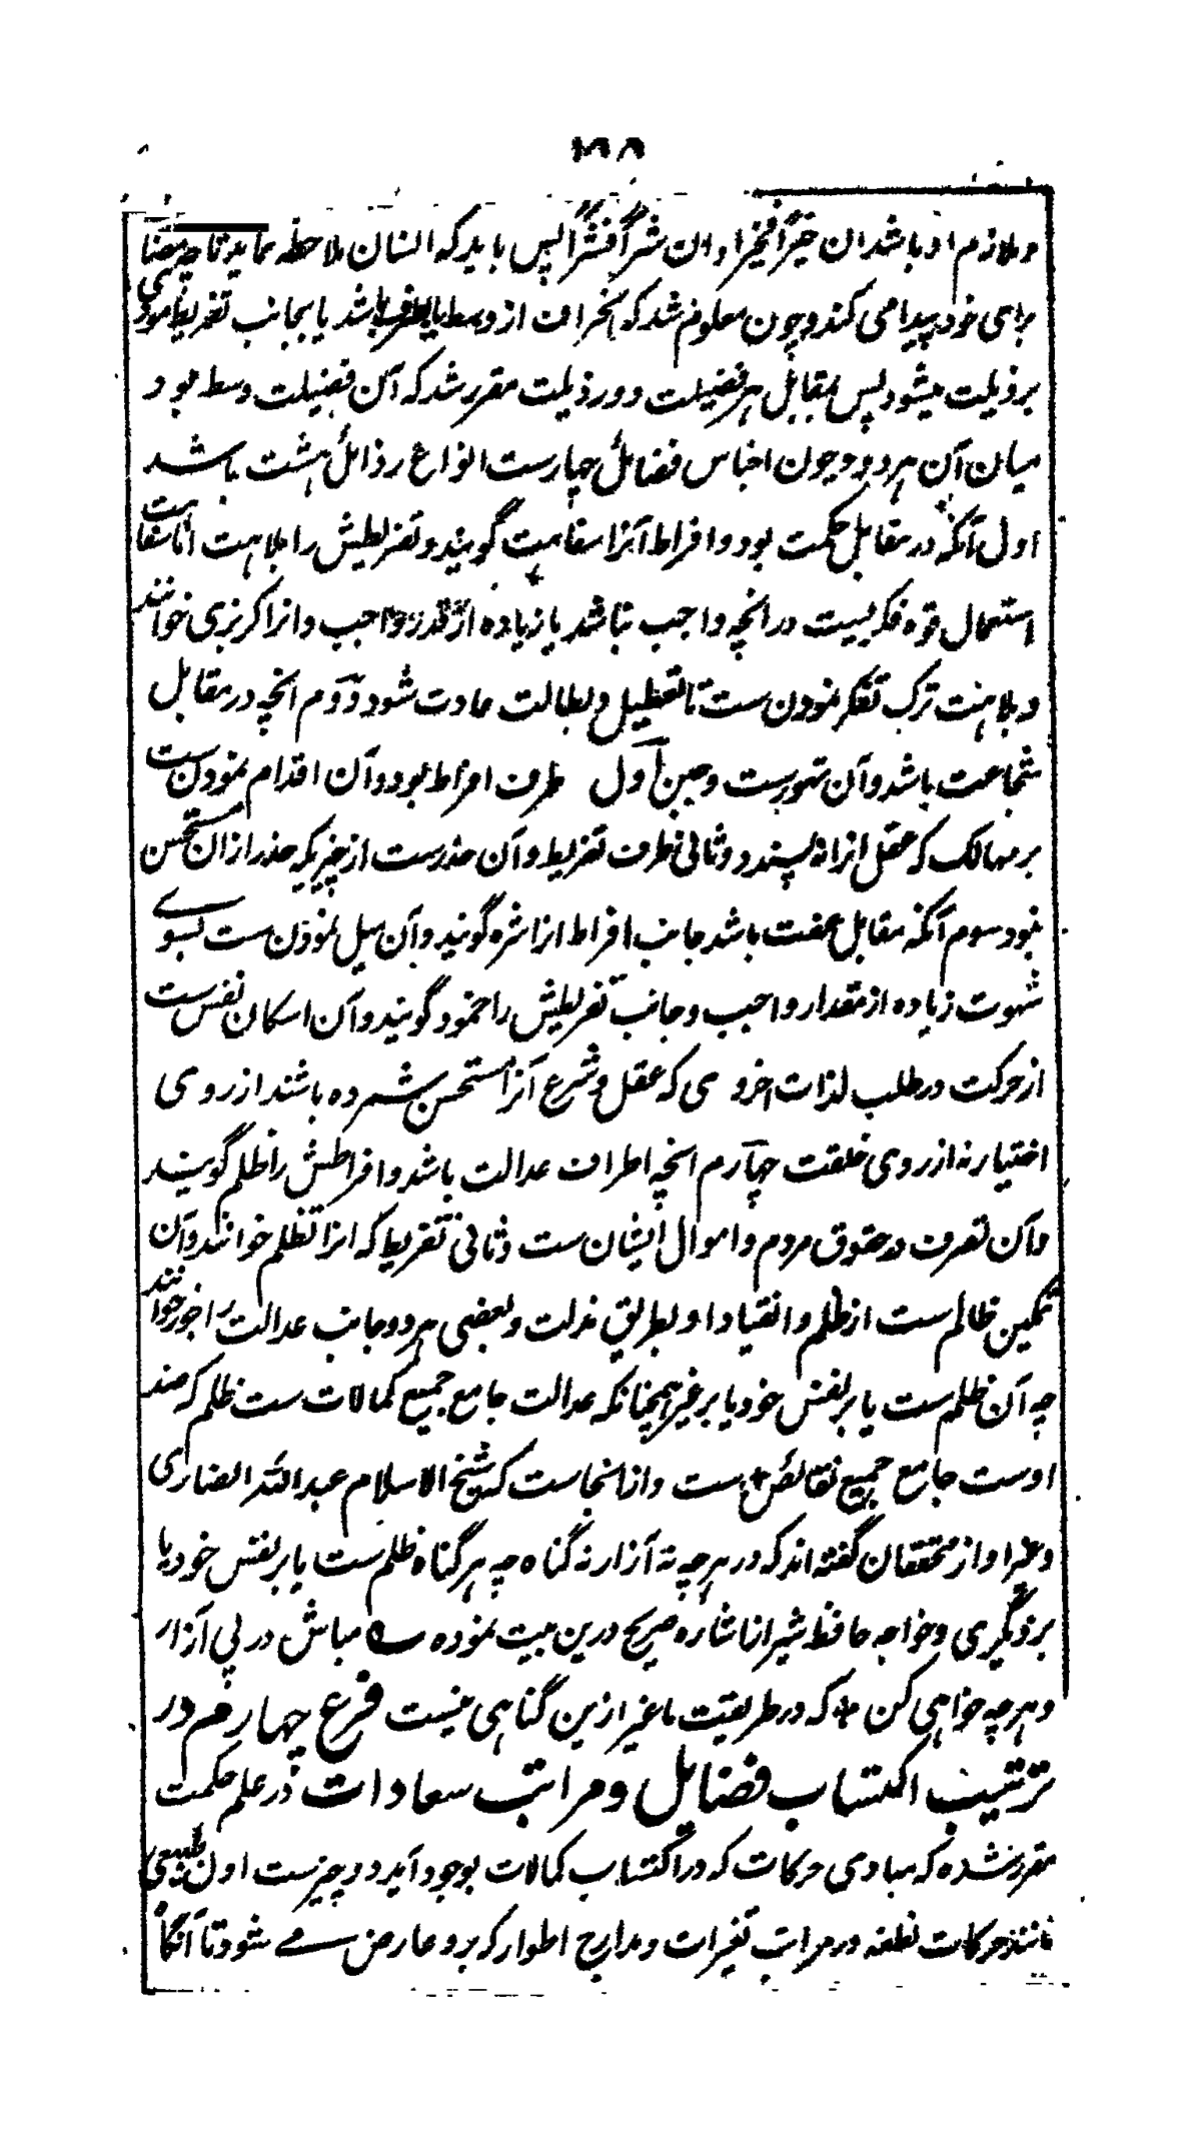 ۲۹۸
و ملازم او باشد ان خیراً فخیرا و ان شراً فشراً پس باید که انسان ملاحظه نماید تا چه مصاحبی
برای خود پیدا می کند و چون معلوم شد که انحراف از وسط یا بطرف باشد یا بجانب تفریط مودی
برذیلت میشود پس بمقابل هر فضیلت دو رذیلت مقرر شد که آن فضیلت وسط بود
میان آن هر دو و چون اجناس فضائل چهارست انواع رذائل هشت باشد
اول آنکه در مقابل حکمت بود و افراط آنرا سفاهت گویند و تفریطش را بلاهت اما سفاهت
استعمال قوه فکریست در انچه واجب نباشد یا زیاده از قدر واجب و انرا کربزی خوانند
و بلاهت ترک تفکر نمودن ست تا تعطیل و بطالت عادت شود دوم انچه در مقابل
شجاعت باشد و آن تهورست و جبن اول طرف افراط بود و آن اقدام نمودن ست
بر مهالک که عقل انرا نه پسندد و ثانی طرف تفریط و آن حذرست از چیزیکه حذر ازان مستحسن
نبود سوم آنکه مقابل عفت باشد جانب افراط انرا شره گویند و آن میل نمودن ست بسوے
شهوت زیاده از مقدار واجب و جانب تفریطش را خمود گویند و آن اسکان نفس ست
از حرکت در طلب لذات اخروی که عقل و شرع آنرا مستحسن شمرده باشند از روی
اختیار نه از روی خلقت چهارم انچه اطراف عدالت باشد و افراطش را ظلم گویند
و آن تصرف در حقوق مردم و اموال ایشان ست و ثانی تفریط که انرا تظلم خوانند و آن
تمکین ظالم ست از ظلم و انقیاد او بطریق مذلت و بعضی هر دو جانب عدالت را جور خوانند
چه آن ظلم ست یا بر نفس خود یا بر غیر همچنانکه عدالت جامع جمیع کمالات ست ظلم که ضد
اوست جامع جمیع نقائص ست و ازانجاست که شیخ الاسلام عبدالله انصاری
و غیر او از محققان گفته اند که در هرچه نه آزار نه گناه چه هر گناه ظلم ست یا بر نفس خود یا
بر دیگری و خواجه حافظ شیراز اشاره صریح درین بیت نموده ؎ مباش در پی آزار
و هرچه خواهی کن * که در طریقت ما غیر ازین گناهی نیست فرع چهارم در
ترتیب اکتساب فضایل و مراتب سعادات در علم حکمت
مقرر شده که مبادی حرکات که در اکتساب کمالات بوجود آید دو چیزست اول طبیعی
مانند حرکات نطفه در مراتب تغیرات و مدارج اطوار که برو عارض مے شود تا آنگاه